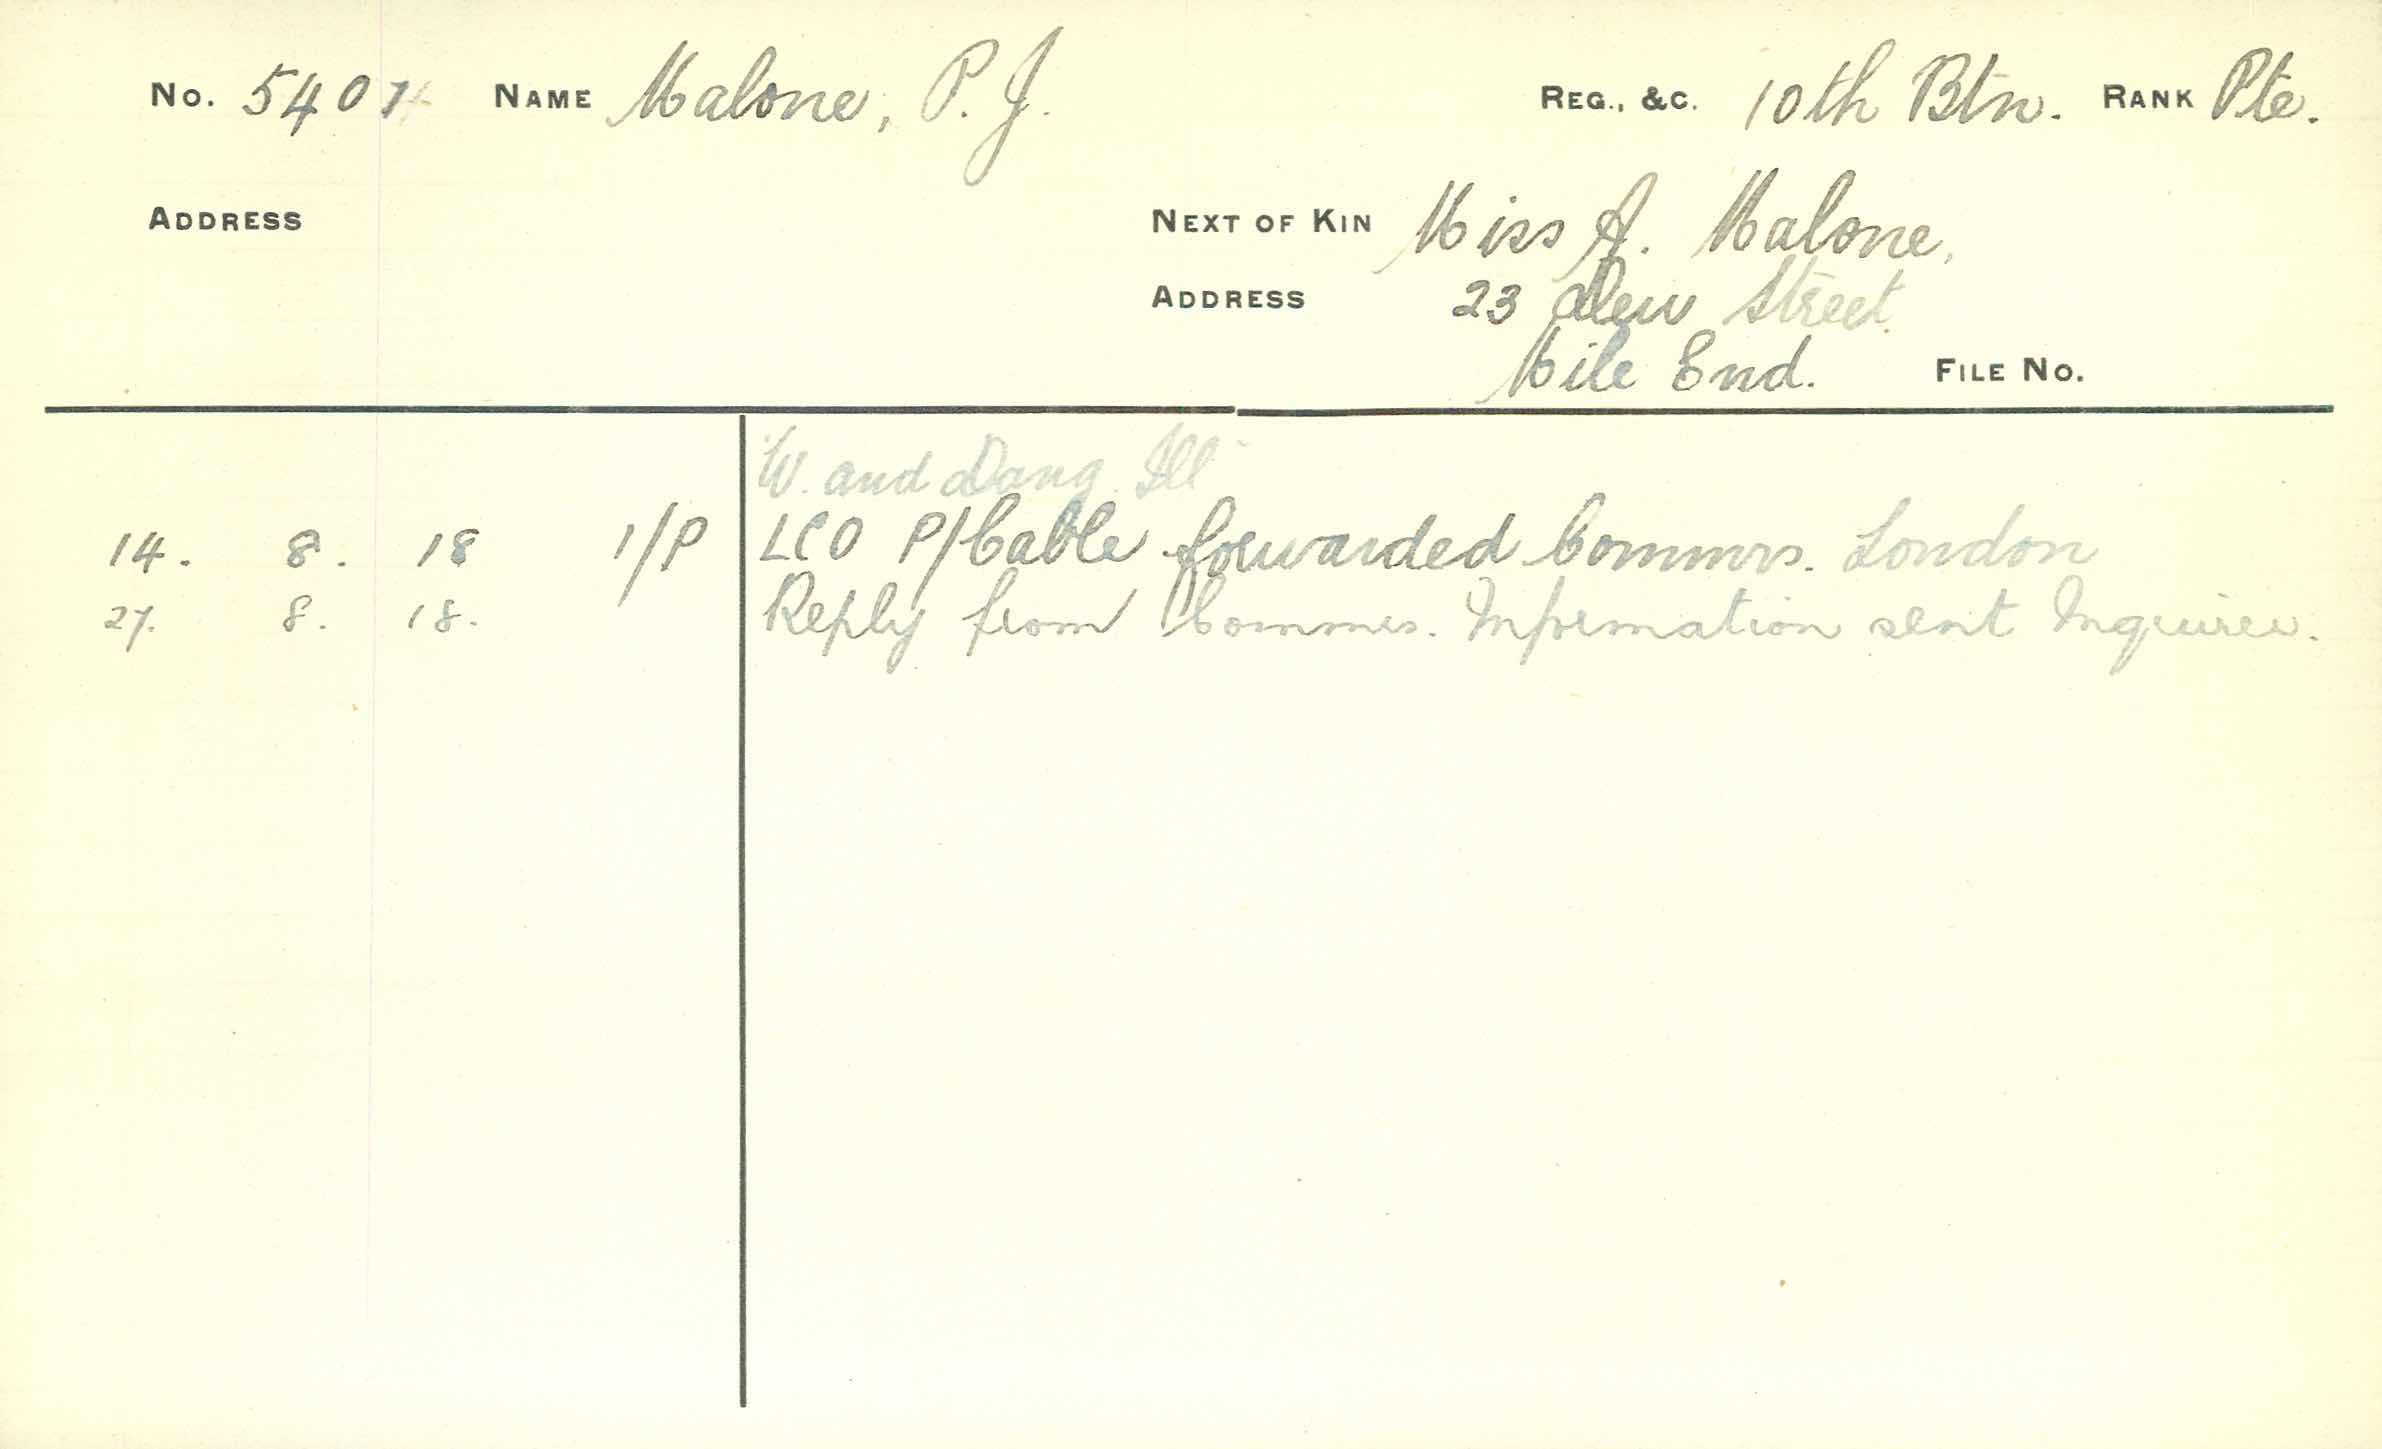 No. 5407 Name Malone, P. J. Reg., &c. 10th Btn. Rank Pte.
Address Next of Kin Miss A. Malone,
Address 23 Dew Street
Mile End. File No.
W. and Dang. Ill
14. 8. 18 1/P LCO P/Cable forwarded Commrs. London
27. 8. 18. Reply from Commrs. Information sent Inquirer.